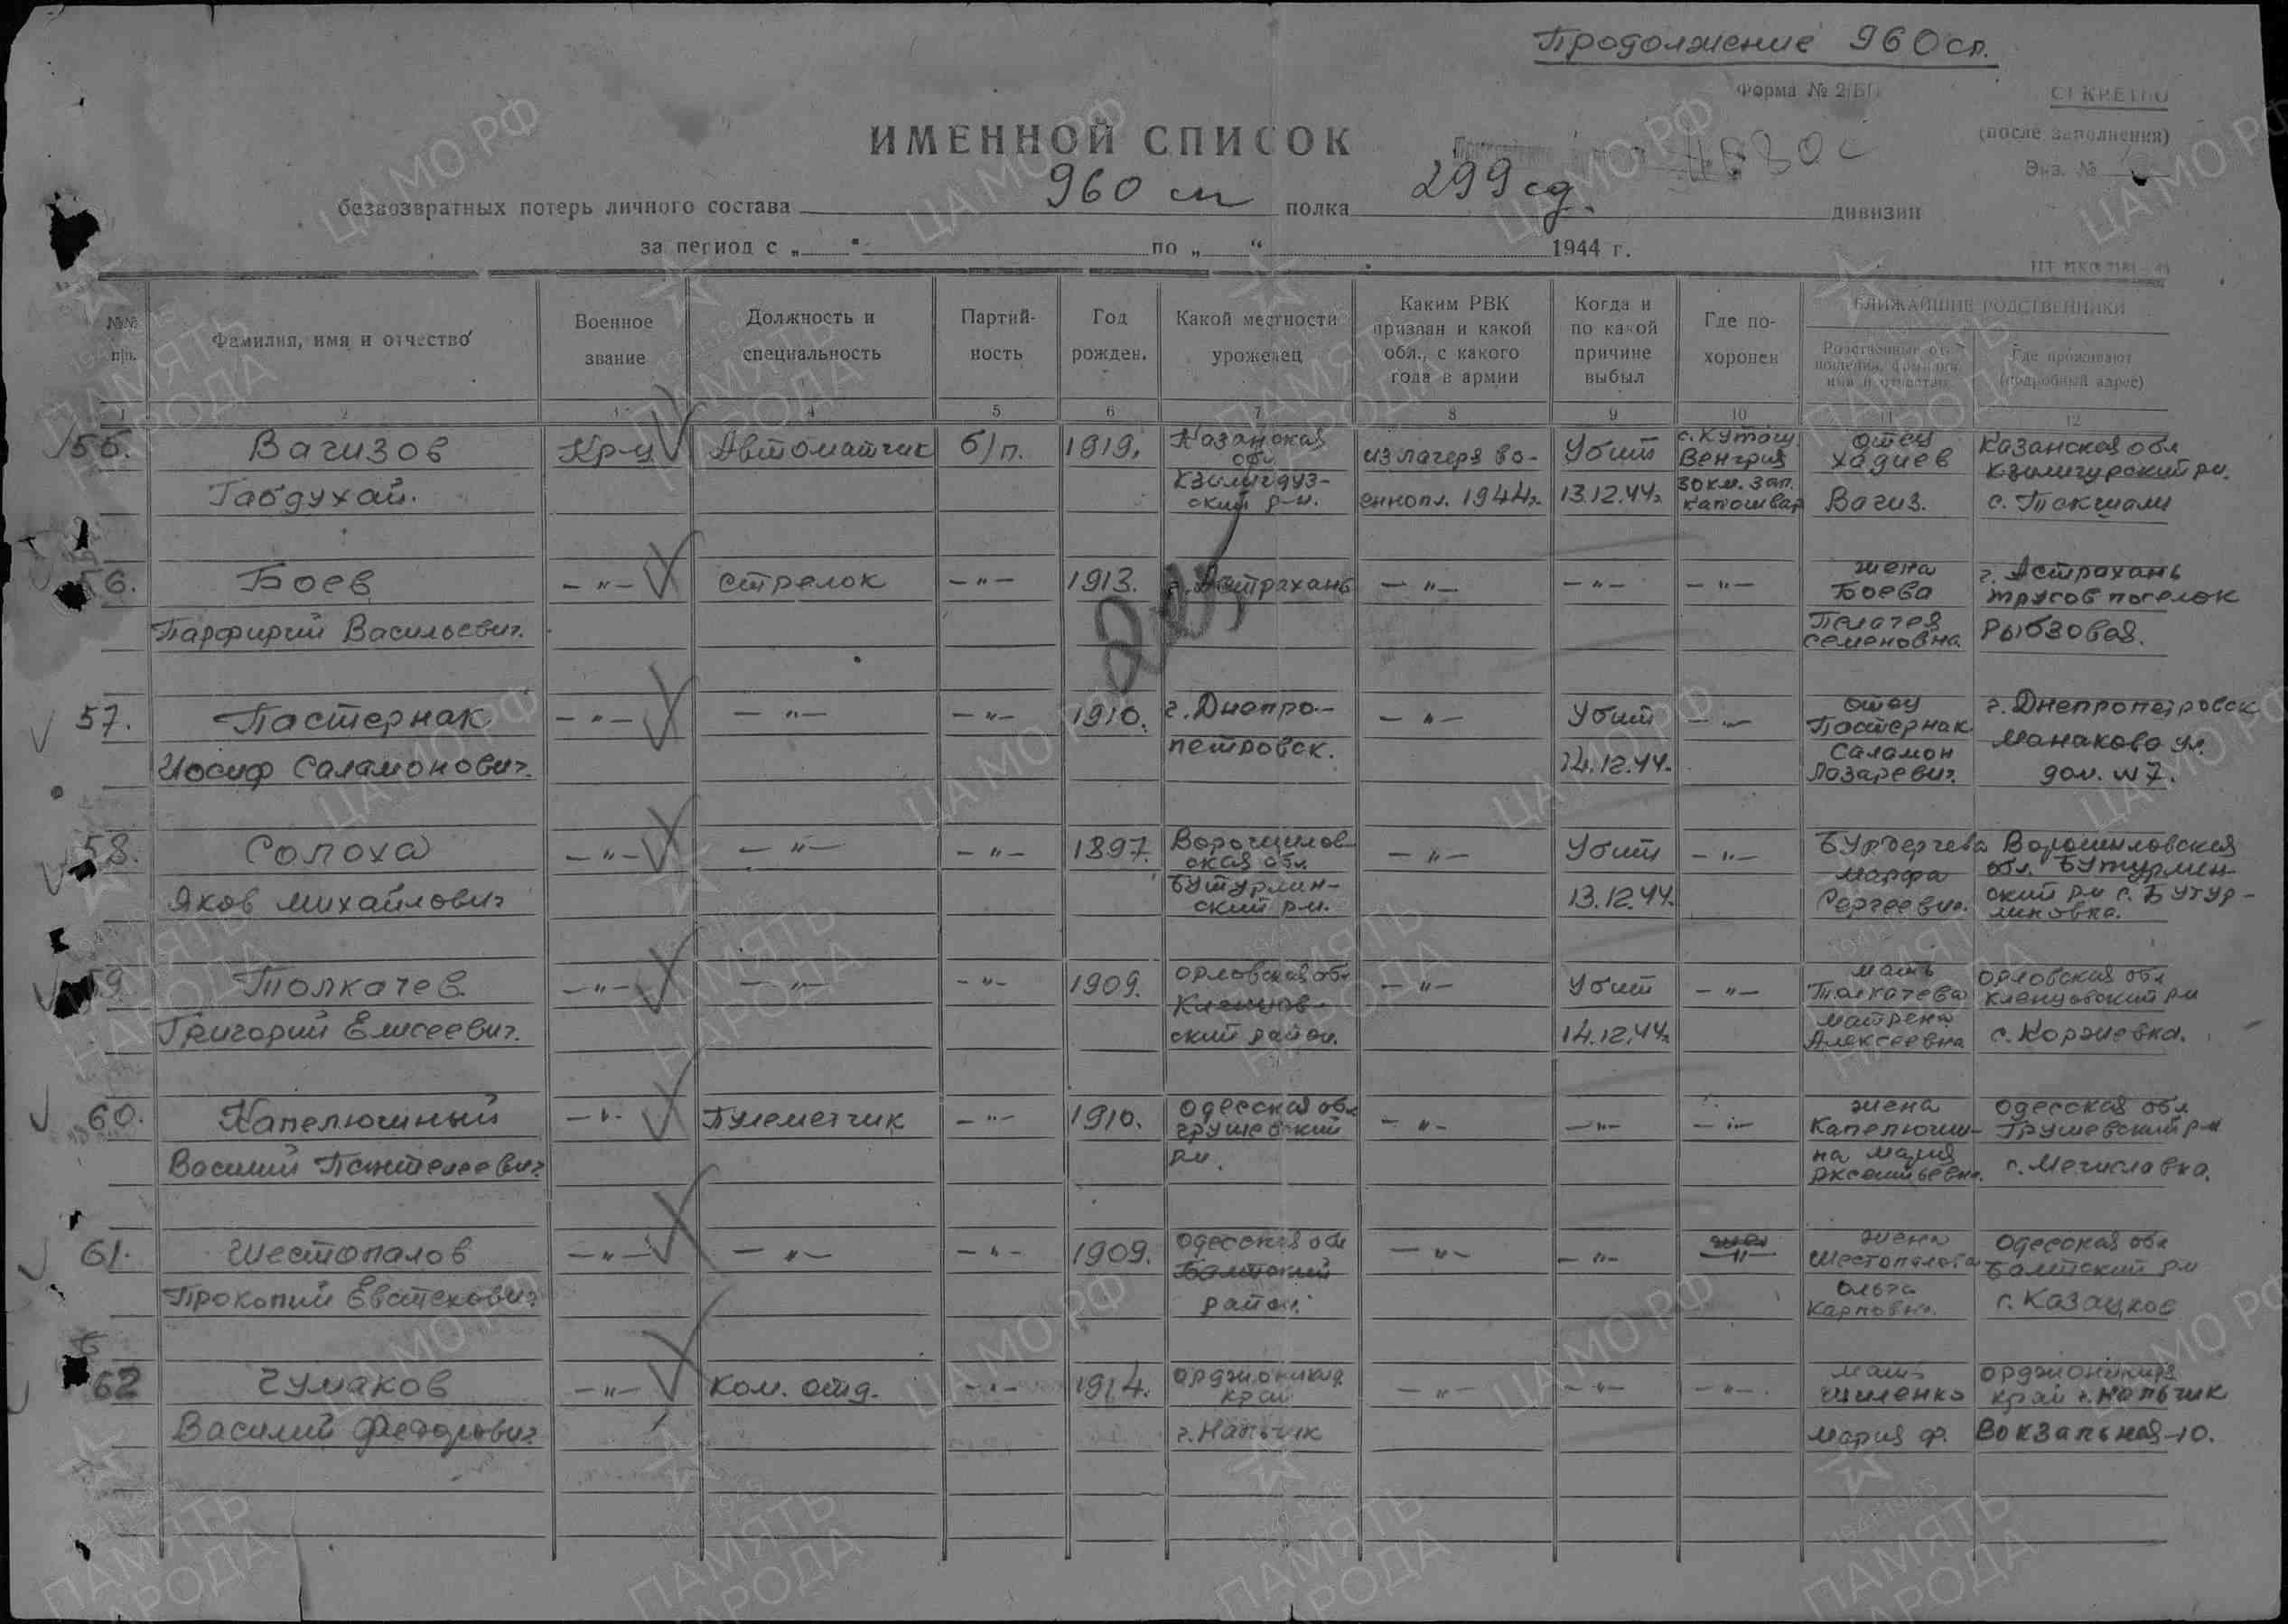 Продолжение 960 сп.
Форма № 2/БП
СЕКРЕТНО
(после заполнения)
Экз. №
ИМЕННОЙ СПИСОК
безвозвратных потерь личного состава 960 сп полка 299 сд. дивизии
за период с „ “ по „ “ 1944 г.
№№ п/п.
Фамилия, имя и отчество
Военное звание
Должность и специальность
Партийность
Год рожден.
Какой местности уроженец
Каким РВК призван и какой обл., с какого года в армии
Когда и по какой причине выбыл
Где похоронен
БЛИЖАЙШИЕ РОДСТВЕННИКИ
Родственные отношения, фамилия имя и отчество
Где проживают (подробный адрес)
1 2 3 4 5 6 7 8 9 10 11 12
55. Вагизов Кр-ц Автоматчик б/п. 1919. Казанская обл. из лагеря во- Убит Венгрия отец Хадиев Казанская обл
Габдухай. ский р-н. еннопл. 1944г. 13.12.44г. 30 км. зап. Капошвар Вагиз. с.
56. Боев —"— стрелок —"— 1913. г. Астрахань —"— —"— —"— жена Боева г. Астрахань Трусов поселок
Парфирий Васильевич. Пелагея Семеновна.
57. Пастернак —"— —"— —"— 1910. г. Днепро- —"— Убит —"— отец Пастернак г. Днепропетровск
Иосиф Саламонович. петровск. 14.12.44. Саламон Лазаревич. Манакова ул. дом. №7.
58. Солоха —"— —"— —"— 1897. Ворошилов- ская обл. —"— Убит —"— Ворошиловская обл. Бутурлин-
Яков Михайлович Бутурлин- ский р-н. 13.12.44. Марфа Сергеевна. ский р-н с. Бутур- линовка.
59. Толкачев —"— —"— —"— 1909. Орловская обл —"— Убит —"— мать Толкачева Орловская обл Клинцовский р-н
Григорий Елисеевич. ский район. 14.12.44г. Матрена Алексеевна с. Коржовка.
60. Капелюшный —"— Пулеметчик —"— 1910. Одесская обл Грушевский —"— —"— —"— жена Капелюш- Одесская обл Грушевский р-н
Василий Пантелеевич р-н. на Мария Аксентьевна. с. Мечиславка.
61. Шестопалов —"— —"— —"— 1909. Одесская обл Балтский —"— —"— —"— жена Шестопалова Одесская обл Балтский р-н
Прокопий Евстехович район. Ольга Карповна. с. Казацкое
62 Чумаков —"— Ком. отд. —"— 1914. Орджоникид. край —"— —"— —"— мать Орджоникидз. край г. Нальчик
Василий Федорович г. Нальчик Мария Ф. Вокзальная-10.
ЦА МО РФ
ПАМЯТЬ НАРОДА